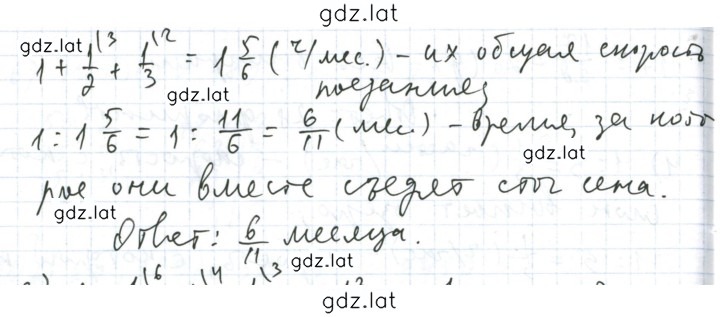 gdz.lat
gdz.lat
1 + 1/2 \3 + 1/3 \2 = 1 5/6 (ч/мес.) – их общая скорость
поедания,
gdz.lat
1 : 1 5/6 = 1 : 11/6 = 6/11 (мес.) – время, за кото
gdz.lat
рое они вместе съедят стог сена.
gdz.lat
Ответ: 6/11 месяца.
gdz.lat
\6 \4 \3
gdz.lat